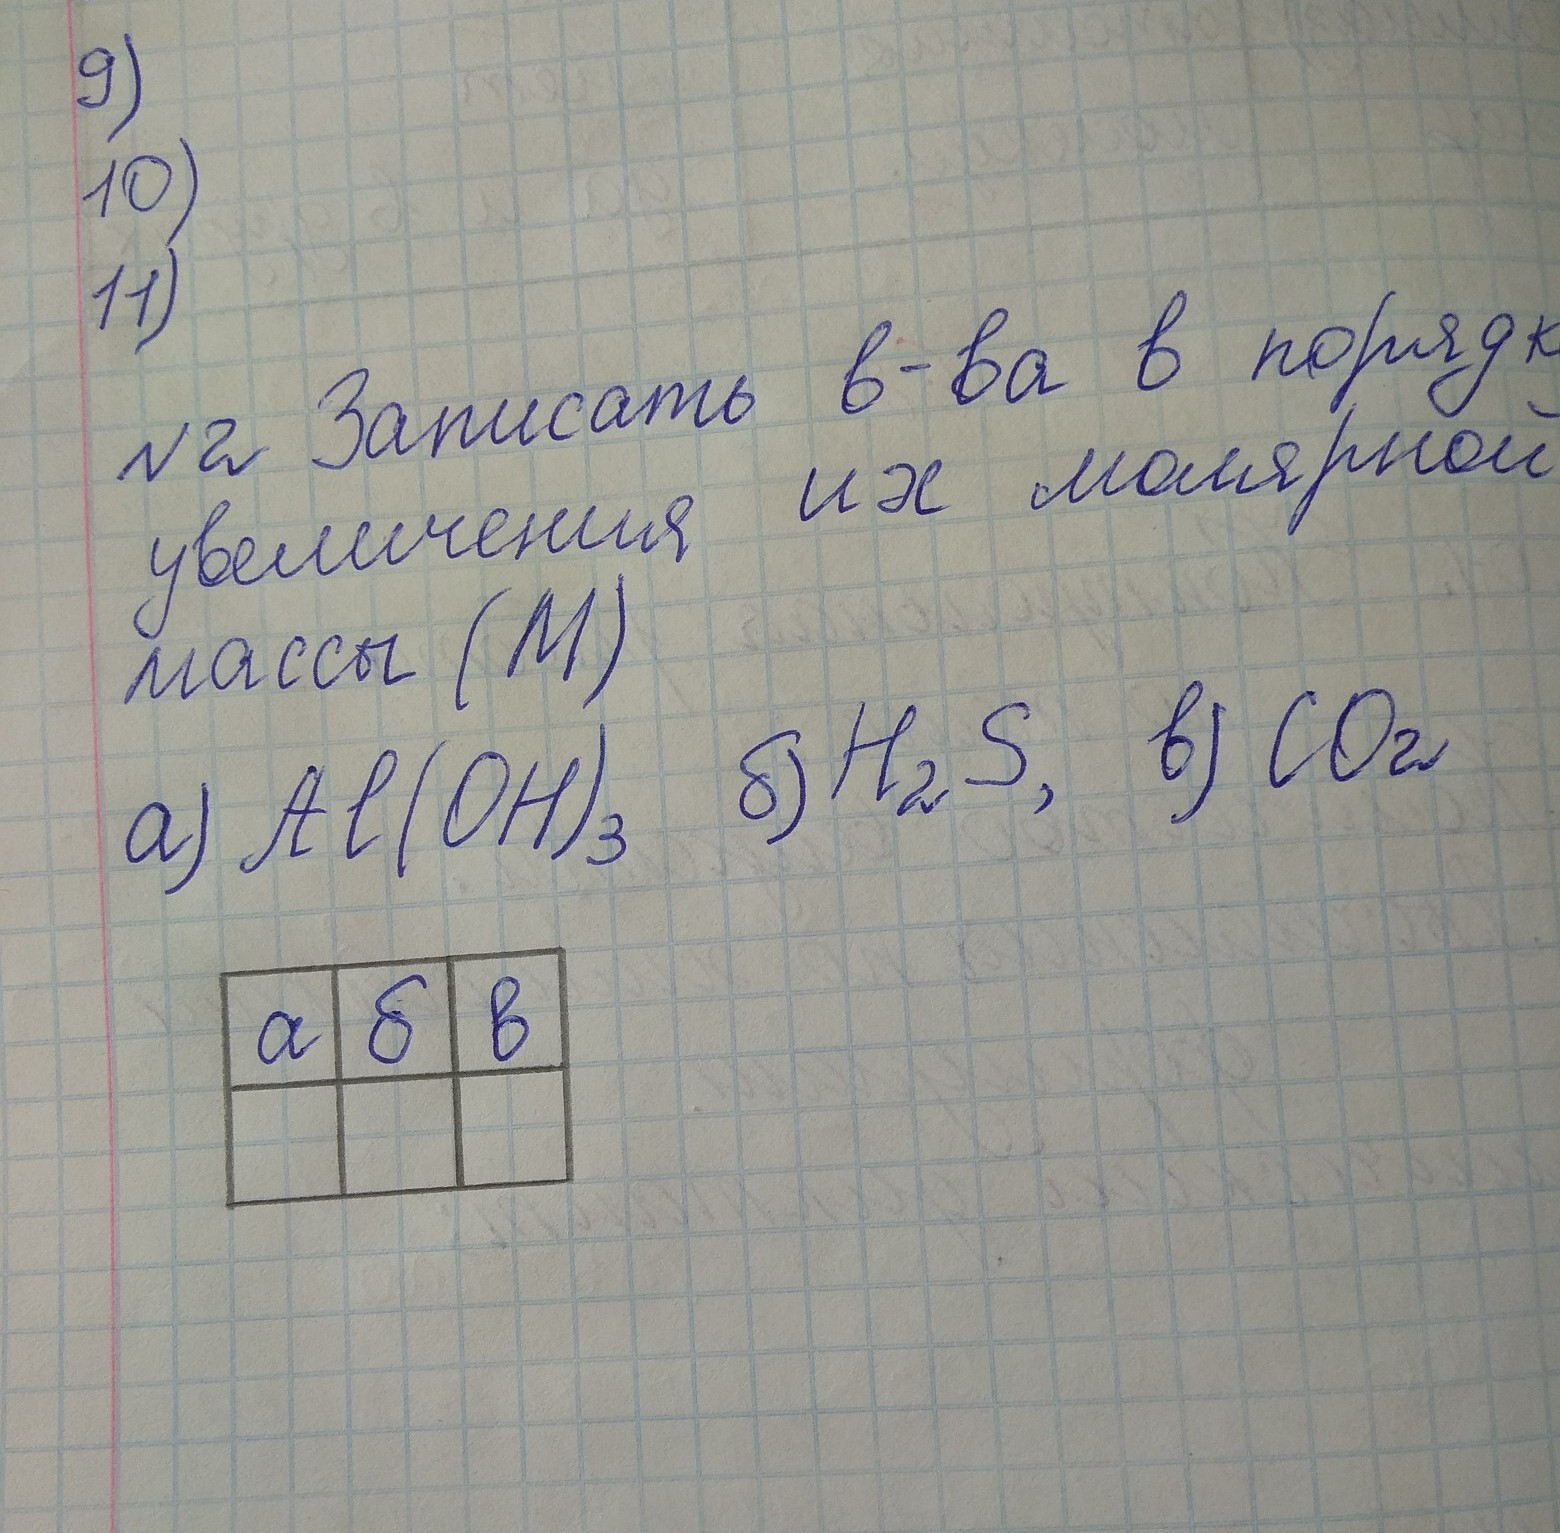 9)
10)
11)
№2 Записать в-ва в порядк
увеличения их молярной
массы (М)
а) Al(OH)3 б) H2S, в) CO2
а б в